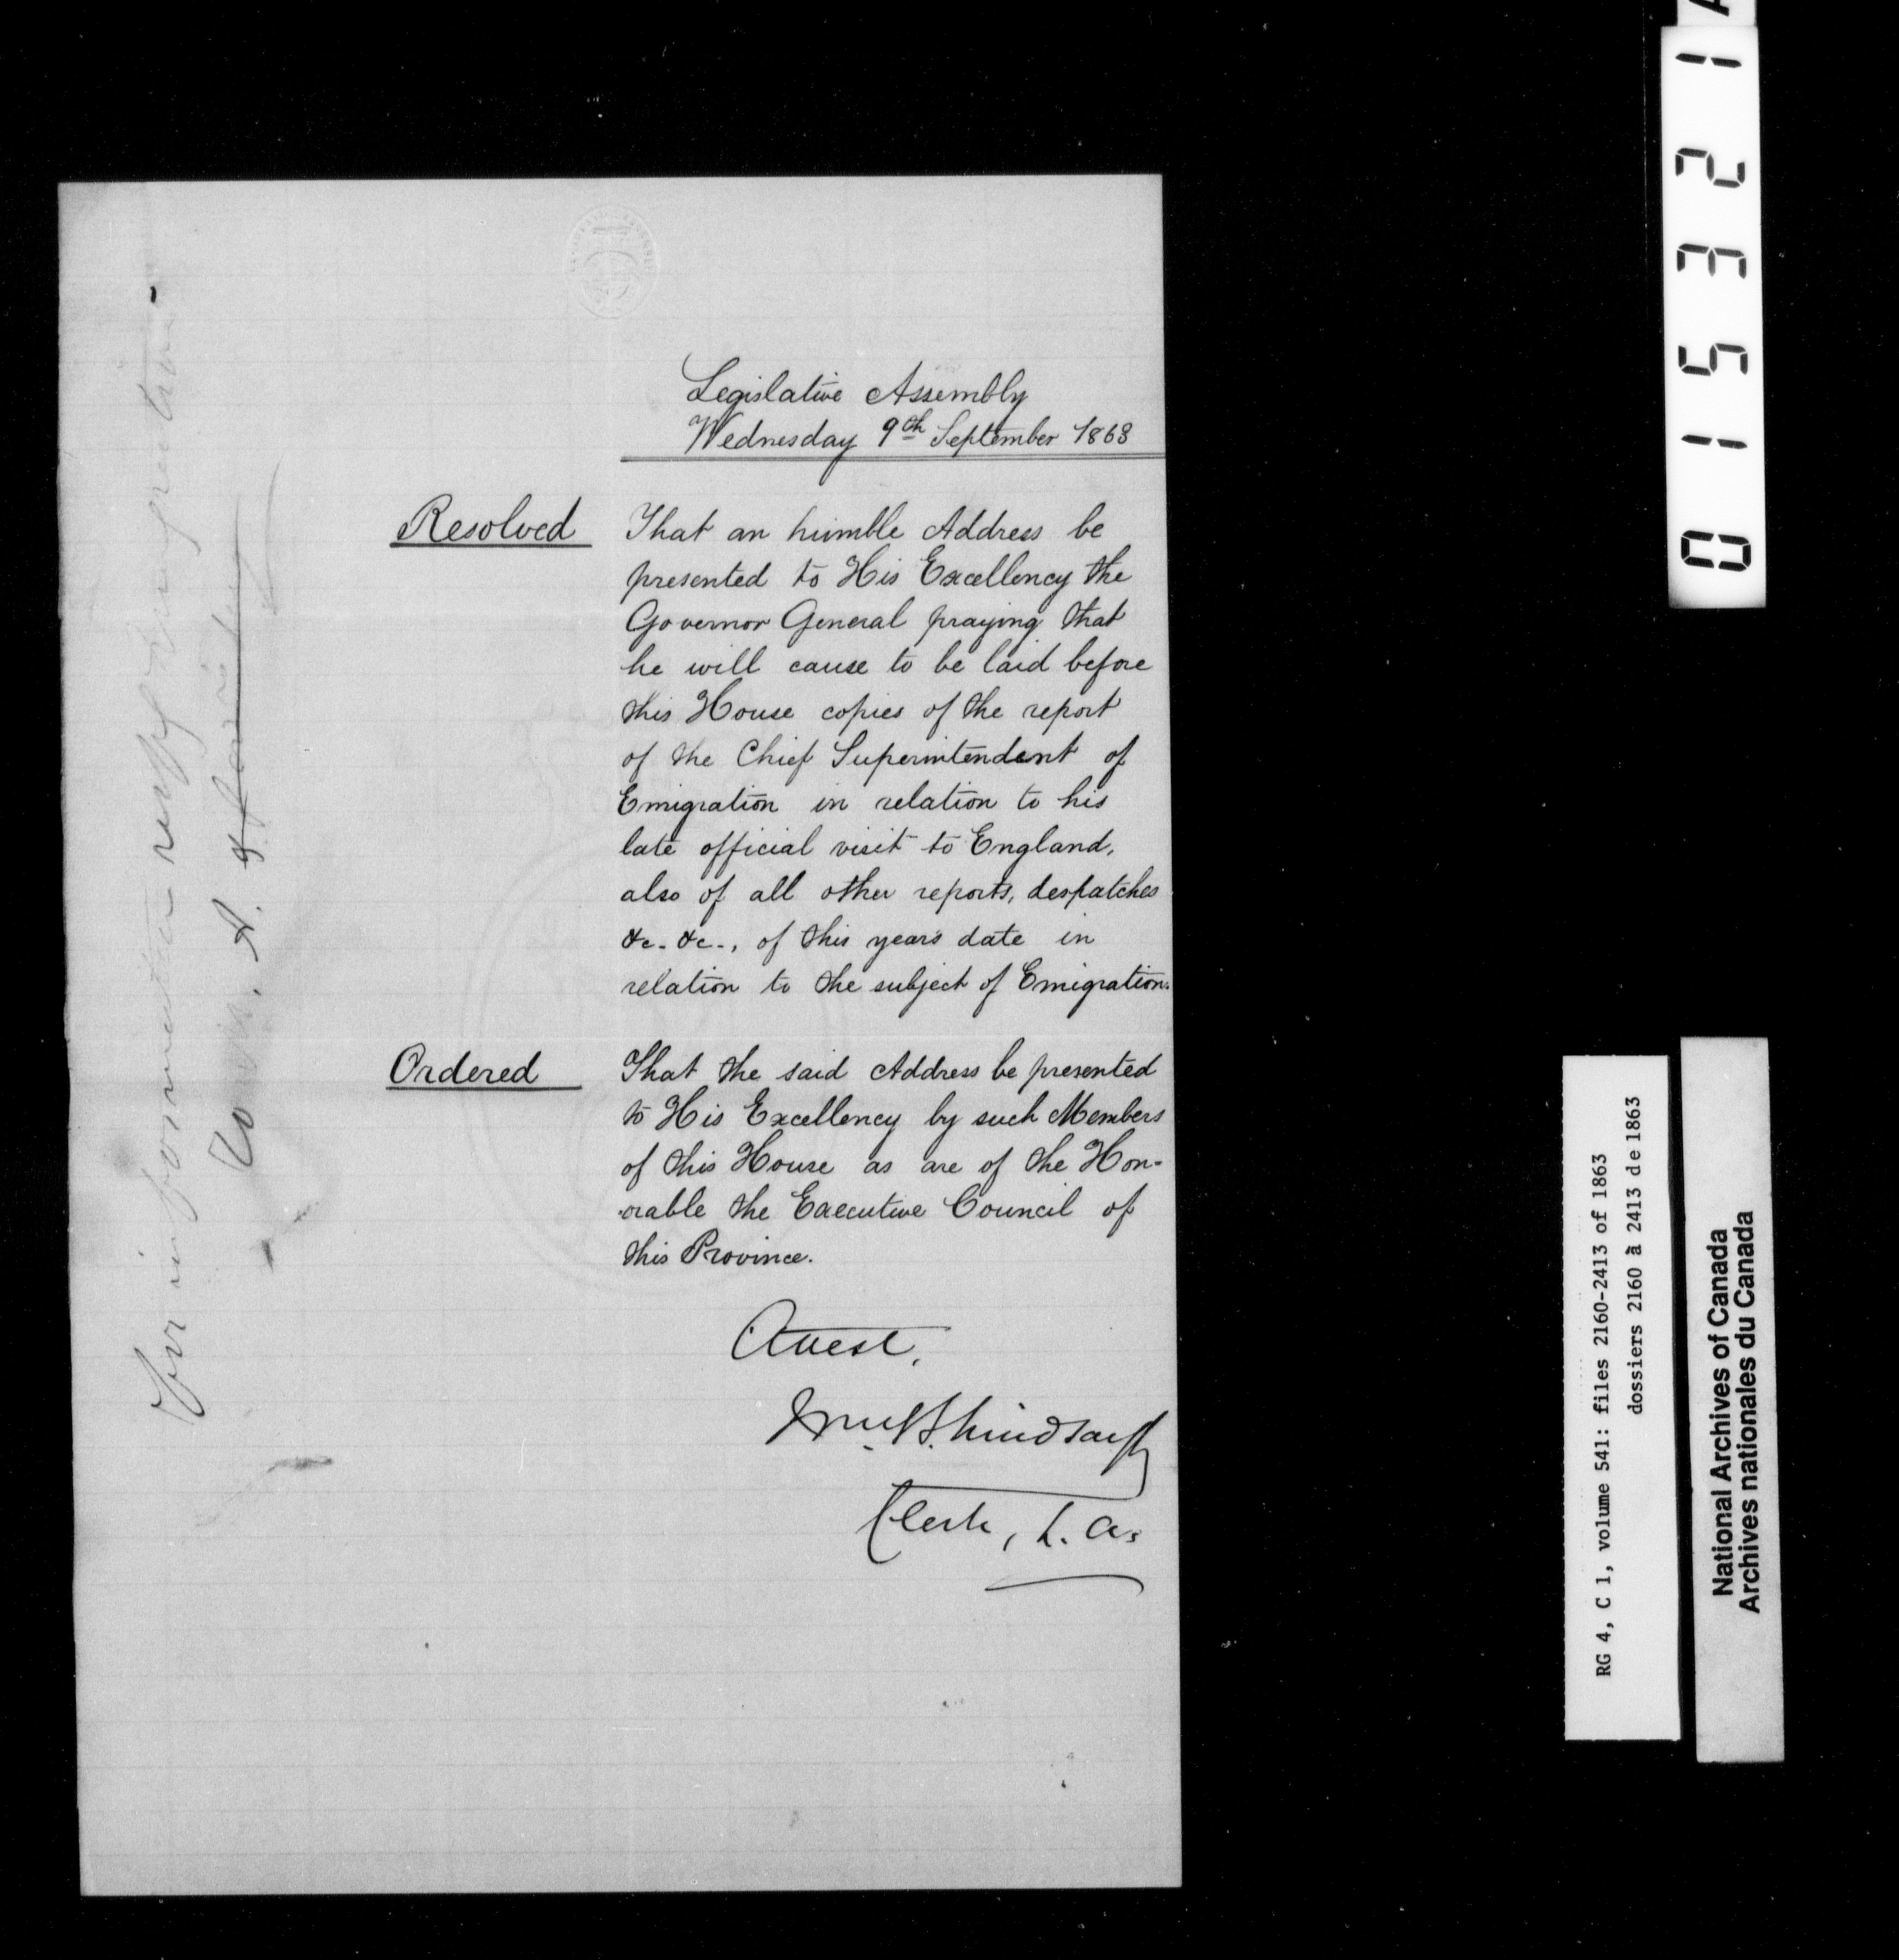 Legislative Assembly
Wednesday 9th September 1863
Resolved That an humble Address be
presented to His Excellency the
Governor General praying that
he will cause to be laid before
this House copies of the report
of the Chief Superintendent of
Emigration in relation to his
late official visit to England,
also of all other reports, despatches
&c. &c., of this year's date in
relation to the subject of Emigration.
Ordered That the said Address be presented
to His Excellency by such Members
of this House as are of the Hon-
-orable the Executive Council of
this Province.
Attest,
Wm. B. Lindsay
Clerk, L. A.
for information
015321
RG 4, C 1, volume 541: files 2160-2413 of 1863
dossiers 2160 à 2413 de 1863
National Archives of Canada
Archives nationales du Canada